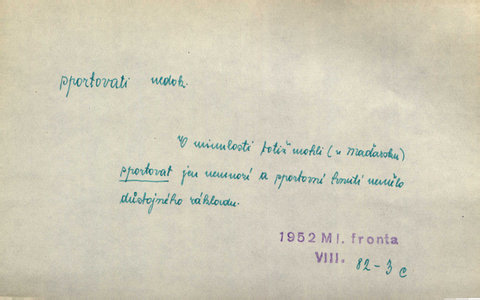 sportovati nedok.
V minulosti totiž mohli (v Maďarsku)
sportovat jen nemnozí a sportovní hnutí nemělo
důstojného základu.
1952 Ml. fronta
VIII. 82-3 c